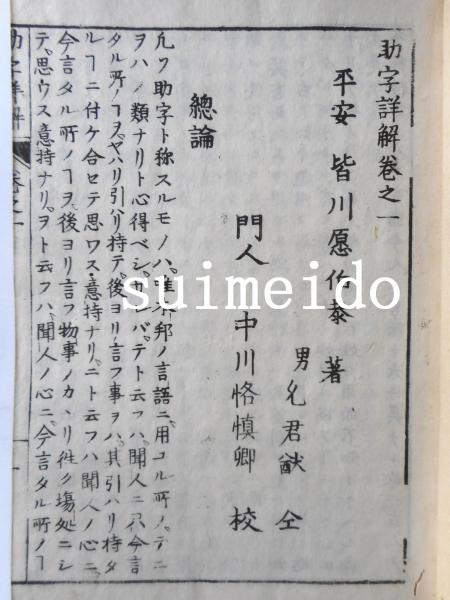 助字詳解卷之一
平安 皆川愿伯泰 著
男 允君猷 仝
門人 中川恪慎卿 校
總論
凡ソ助字ト称スルモノハ唯 邦ノ言語ニ用ユル所ノテニ
ヲハノ類ナリト心得ベシ バテト云フハ聞人ニ只今言
タル所ノヿヲヤハリ引ハリ持テ後ヨリ言フ事ヲハ其引ハリ持タ
ルヿニ付ケ合セテ思ワス意持ナリニト云フハ聞人ノ心ニ
今言タル所ノヿヲ後ヨリ言フ物事ノカヽリ徃ク塲処ニシ
テ思ワス意持ナリヲト云フハ聞人ノ心ニ今言タル所ノヿ
助字詳解 卷之一
suimeido